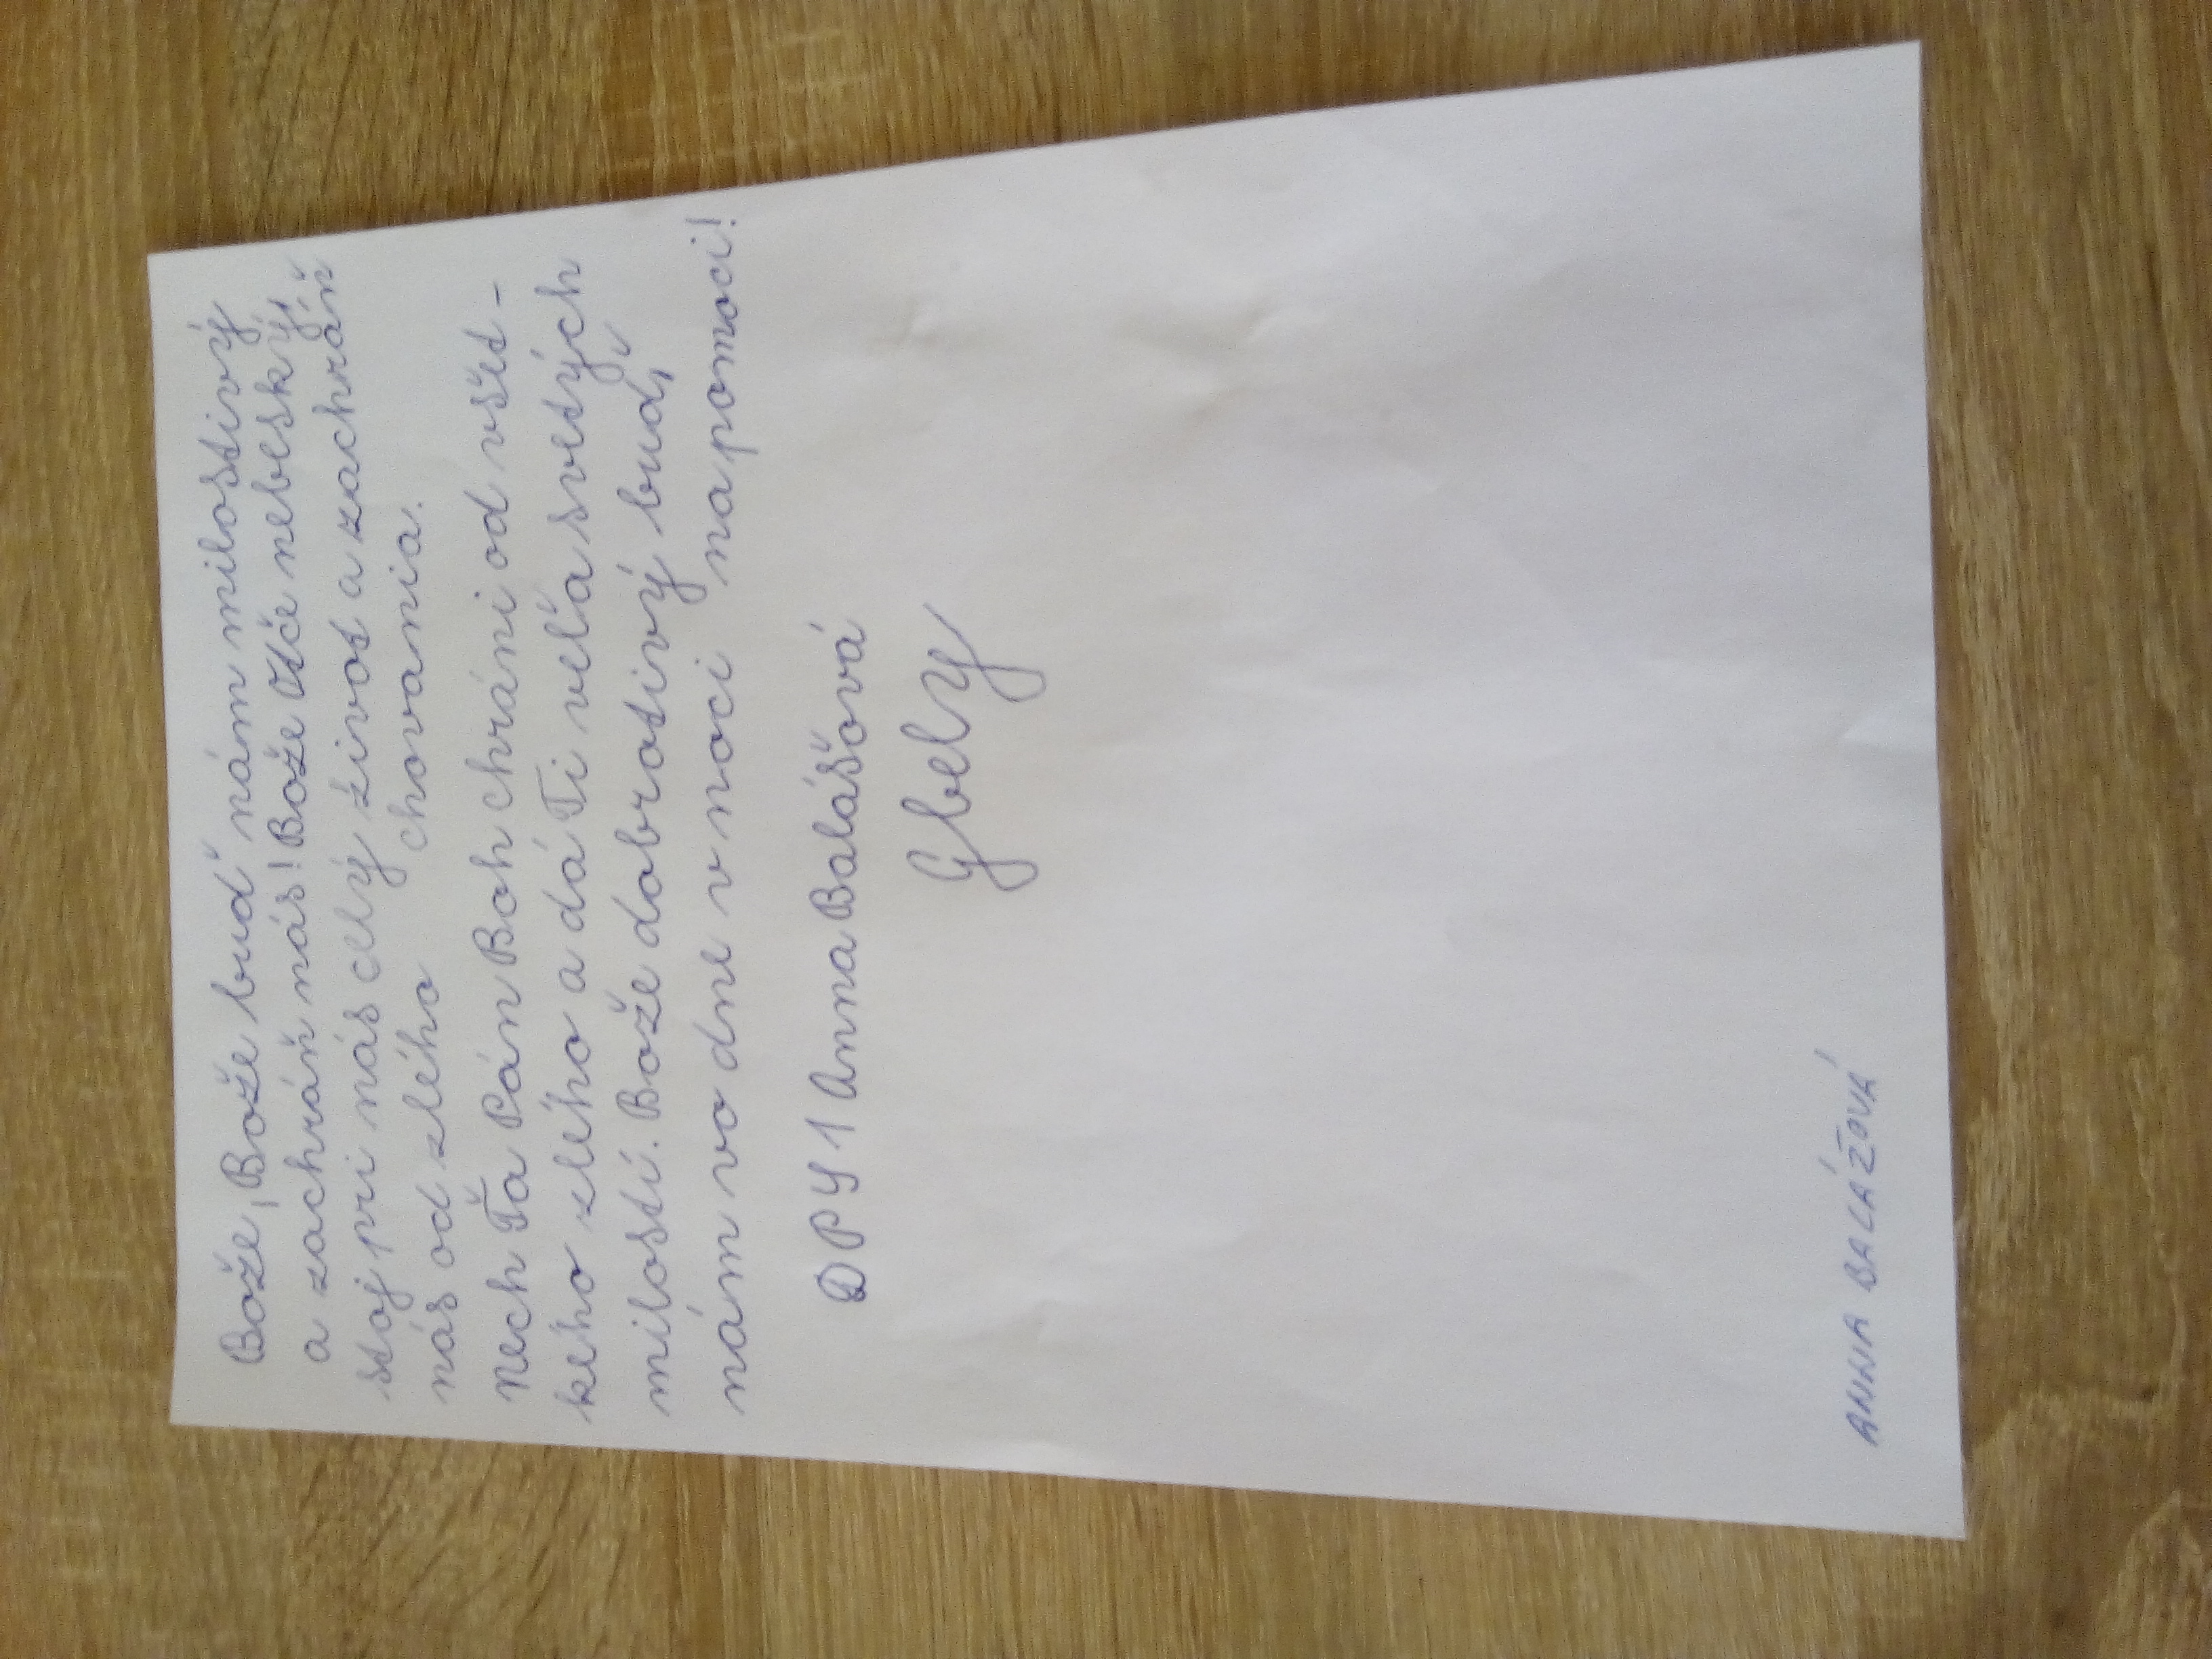 Bože, Bože buď nám milostivý
a zachráň nás! Bože Otče nebeský,
stoj pri nás celý život a zachráň
nás od zlého chovania.
Nech Ťa Pán Boh chráni od všet-
kého zlého a dá Ti veľa svetých
milostí. Bože dobrotivý buď,
nám vo dne v noci na pomoci!
DPY 1 Anna Balášová
Gbely
ANNA BALÁŽOVÁ